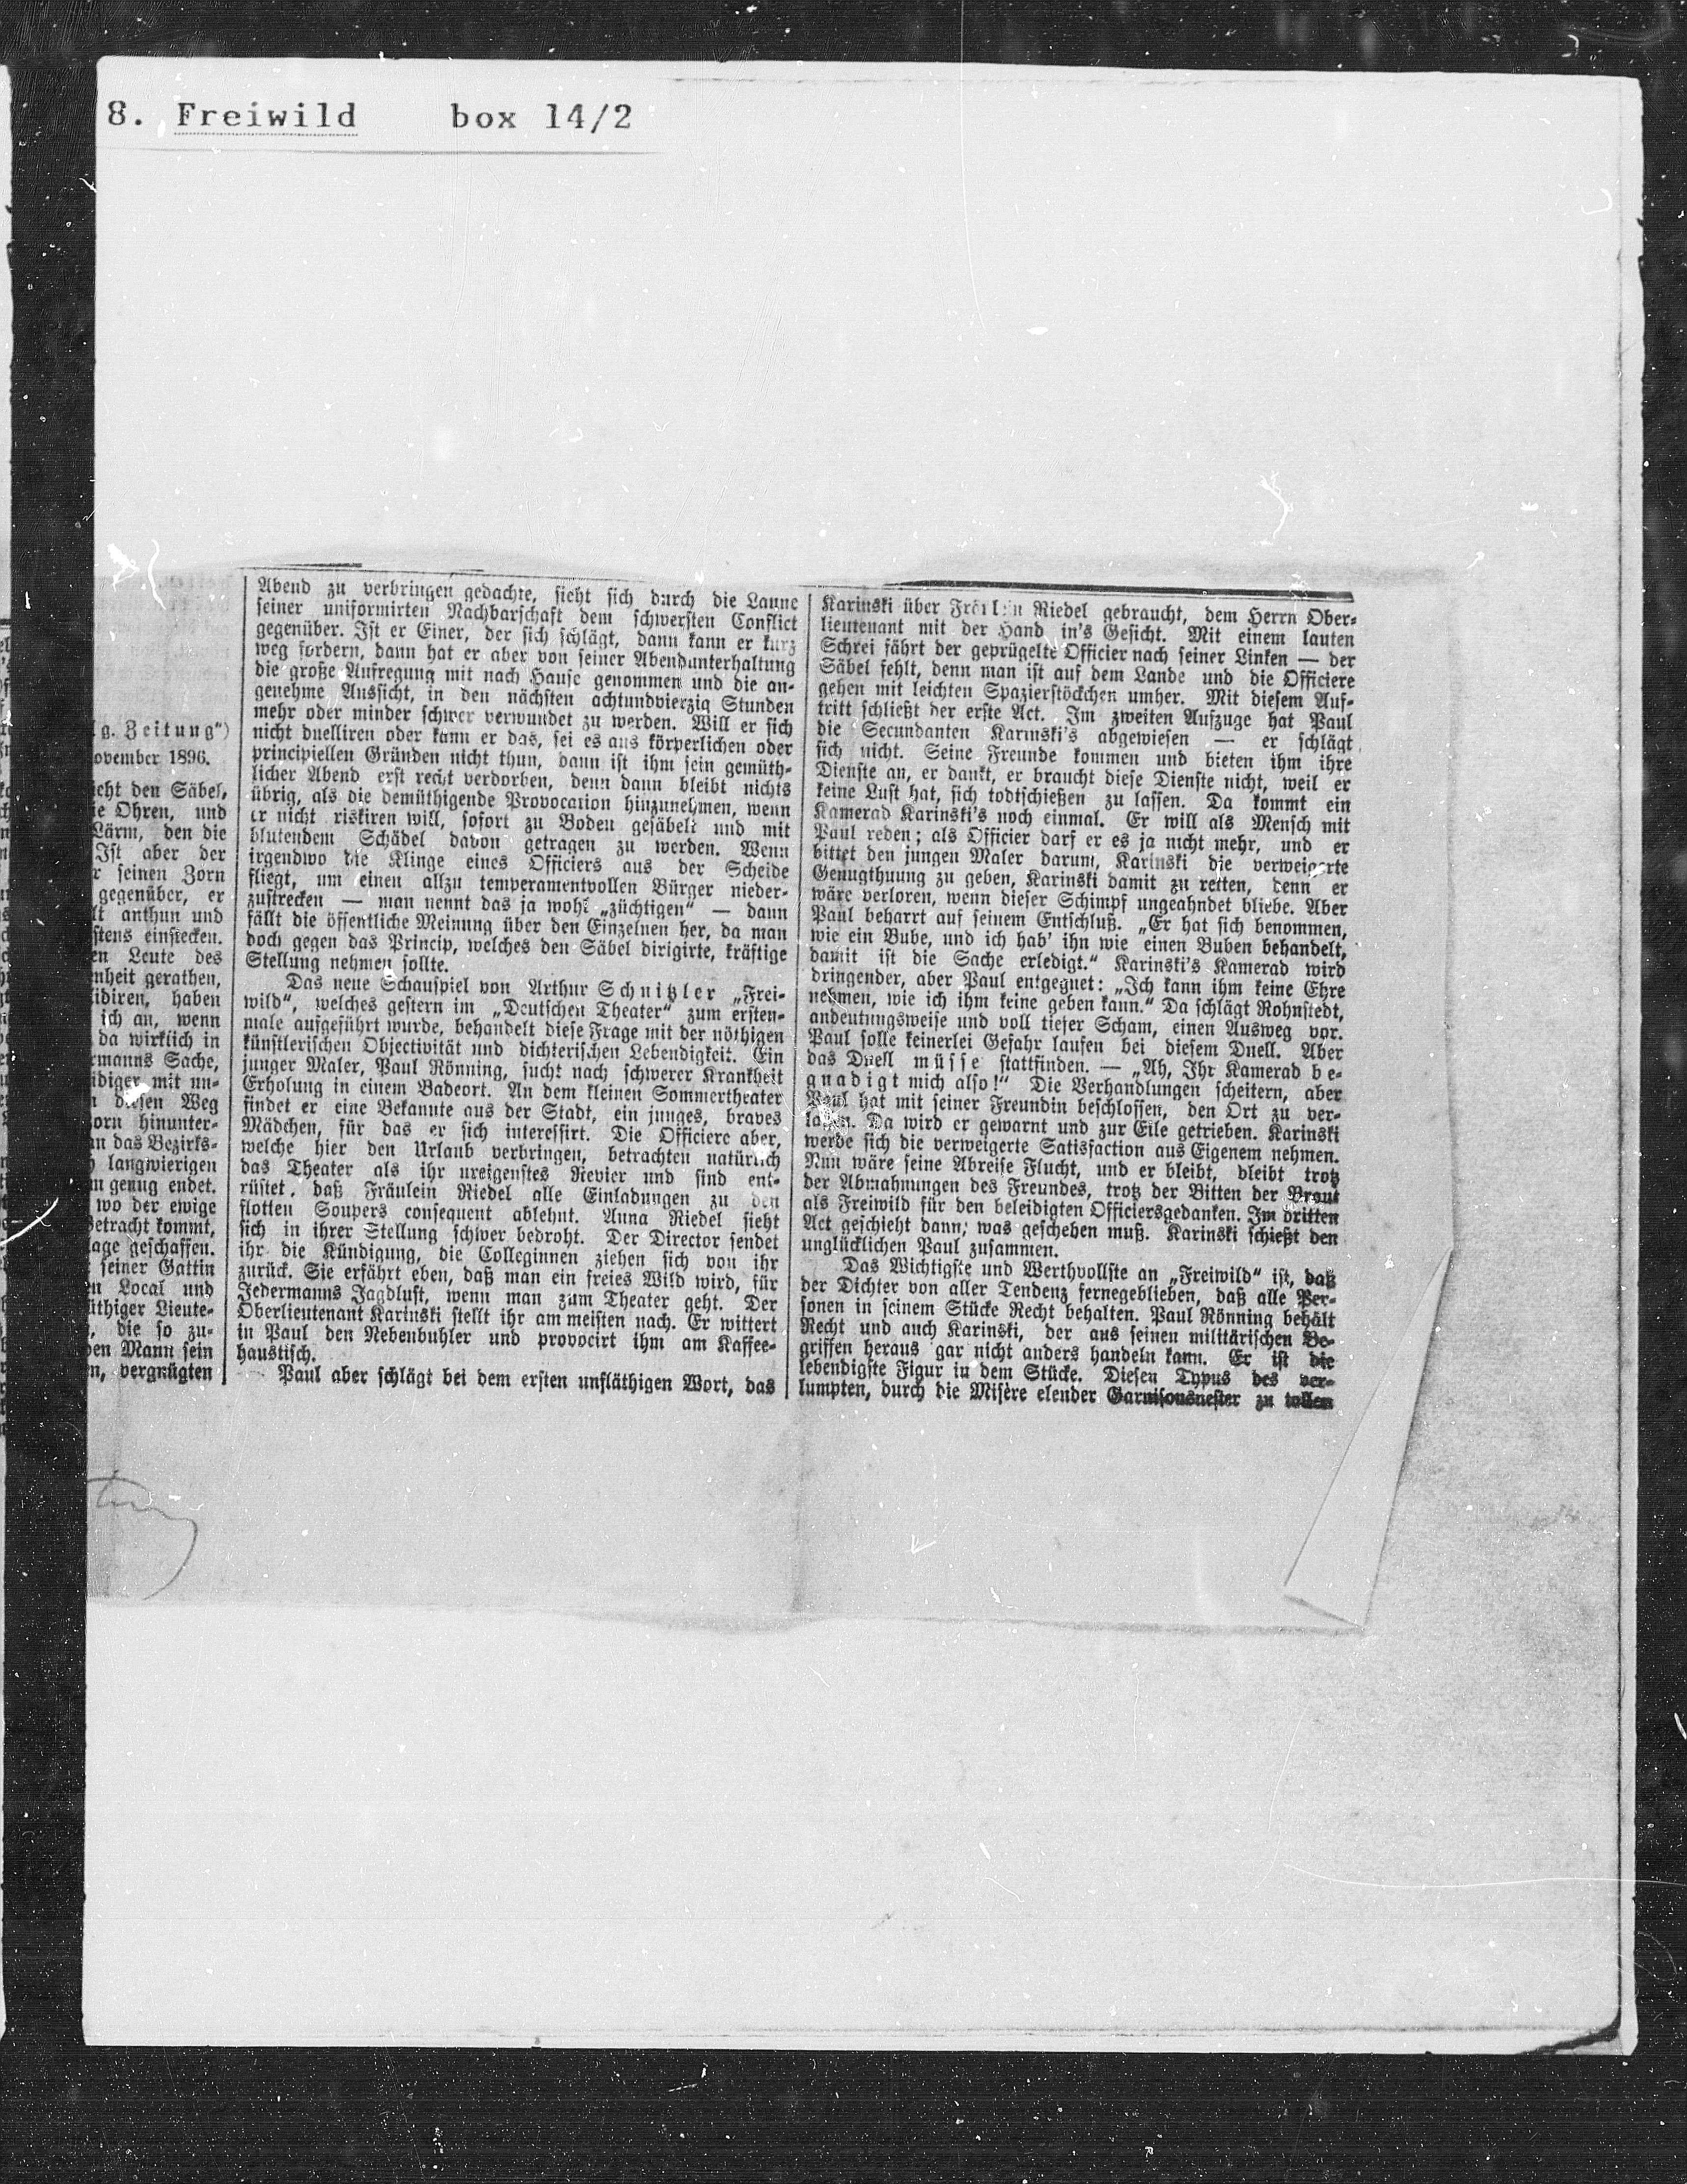 8. Freiwild box 14/2
g. Zeitung")
ovember 1896.
icht den Säbel,
ie Ohren, und
Lärm, den die
Ist aber der
r seinen Zorn
gegenüber, er
lt anthun und
stens einstecken.
en Leute des
nheit gerathen,
idiren, haben
ich an, wenn
da wirklich in
rmanns Sache,
idiger mit un-
diesen Weg
orn hinunter-
an das Bezirks-
langwierigen
m genug endet.
wo der ewige
Betracht kommt,
lage geschaffen.
seiner Gattin
en Local und
üthiger Lieute-
, die so zu-
ben Mann sein
n, vergnügten
Abend zu verbringen gedachte, sieht sich durch die Laune
seiner uniformirten Nachbarschaft dem schwersten Conflict
gegenüber. Ist er Einer, der sich schlägt, dann kann er kurz
weg fordern, dann hat er aber von seiner Abendunterhaltung
die große Aufregung mit nach Hause genommen und die an-
genehme Aussicht, in den nächsten achtundvierzig Stunden
mehr oder minder schwer verwundet zu werden. Will er sich
nicht duelliren oder kann er das, sei es aus körperlichen oder
principiellen Gründen nicht thun, dann ist ihm sein gemüth-
licher Abend erst recht verdorben, denn dann bleibt nichts
übrig, als die demüthigende Provocation hinzunehmen, wenn
er nicht riskiren will, sofort zu Boden gesäbelt und mit
blutendem Schädel davon getragen zu werden. Wenn
irgendwo die Klinge eines Officiers aus der Scheide
fliegt, um einen allzu temperamentvollen Bürger nieder-
zustrecken — man nennt das ja wohl „züchtigen“ — dann
fällt die öffentliche Meinung über den Einzelnen her, da man
doch gegen das Princip, welches den Säbel dirigirte, kräftige
Stellung nehmen sollte.
Das neue Schauspiel von Arthur Schnitzler „Frei-
wild“, welches gestern im „Deutschen Theater“ zum ersten-
male aufgeführt wurde, behandelt diese Frage mit der nöthigen
künstlerischen Objectivität und dichterischen Lebendigkeit. Ein
junger Maler, Paul Rönning, sucht nach schwerer Krankheit
Erholung in einem Badeort. An dem kleinen Sommertheater
findet er eine Bekannte aus der Stadt, ein junges, braves
Mädchen, für das er sich interessirt. Die Officiere aber,
welche hier den Urlaub verbringen, betrachten natürlich
das Theater als ihr ureigenstes Revier und sind ent-
rüstet, daß Fräulein Riedel alle Einladungen zu den
flotten Soupers consequent ablehnt. Anna Riedel sieht
sich in ihrer Stellung schwer bedroht. Der Director sendet
ihr die Kündigung, die Colleginnen ziehen sich von ihr
zurück. Sie erfährt eben, daß man ein freies Wild wird, für
Jedermanns Jagdlust, wenn man zum Theater geht. Der
Oberlieutenant Karinski stellt ihr am meisten nach. Er wittert
in Paul den Nebenbuhler und provocirt ihm am Kaffee-
haustisch.
Paul aber schlägt bei dem ersten unfläthigen Wort, das
Karinski über Fräulein Riedel gebraucht, dem Herrn Ober-
lieutenant mit der Hand in's Gesicht. Mit einem lauten
Schrei fährt der geprügelte Officier nach seiner Linken — der
Säbel fehlt, denn man ist auf dem Lande und die Officiere
gehen mit leichten Spazierstöckchen umher. Mit diesem Auf-
tritt schließt der erste Act. Im zweiten Aufzuge hat Paul
die Secundanten Karinski's abgewiesen — er schlägt
sich nicht. Seine Freunde kommen und bieten ihm ihre
Dienste an, er dankt, er braucht diese Dienste nicht, weil er
keine Lust hat, sich todtschießen zu lassen. Da kommt ein
Kamerad Karinski's noch einmal. Er will als Mensch mit
Paul reden; als Officier darf er es ja nicht mehr, und er
bittet den jungen Maler darum, Karinski die verweigerte
Genugthuung zu geben, Karinski damit zu retten, denn er
wäre verloren, wenn dieser Schimpf ungeahndet bliebe. Aber
Paul beharrt auf seinem Entschluß. „Er hat sich benommen,
wie ein Bube, und ich hab' ihn wie einen Buben behandelt,
damit ist die Sache erledigt.“ Karinski's Kamerad wird
dringender, aber Paul entgegnet: „Ich kann ihm keine Ehre
nehmen, wie ich ihm keine geben kann.“ Da schlägt Rohnstedt,
andeutungsweise und voll tiefer Scham, einen Ausweg vor.
Paul solle keinerlei Gefahr laufen bei diesem Duell. Aber
das Duell müsse stattfinden. — „Ah, Ihr Kamerad be-
gnadigt mich also!“ Die Verhandlungen scheitern, aber
Paul hat mit seiner Freundin beschlossen, den Ort zu ver-
lassen. Da wird er gewarnt und zur Eile getrieben. Karinski
werde sich die verweigerte Satisfaction aus Eigenem nehmen.
Nun wäre seine Abreise Flucht, und er bleibt, bleibt trotz
der Abmahnungen des Freundes, trotz der Bitten der Braut
als Freiwild für den beleidigten Officiersgedanken. Im dritten
Act geschieht dann, was geschehen muß. Karinski schießt den
unglücklichen Paul zusammen.
Das Wichtigste und Werthvollste an „Freiwild“ ist, daß
der Dichter von aller Tendenz fernegeblieben, daß alle Per-
sonen in seinem Stücke Recht behalten. Paul Rönning behält
Recht und auch Karinski, der aus seinen militärischen Be-
griffen heraus gar nicht anders handeln kann. Er ist die
lebendigste Figur in dem Stücke. Diesen Typus des ver-
lumpten, durch die Misère elender Garnisonsnester zu tollen